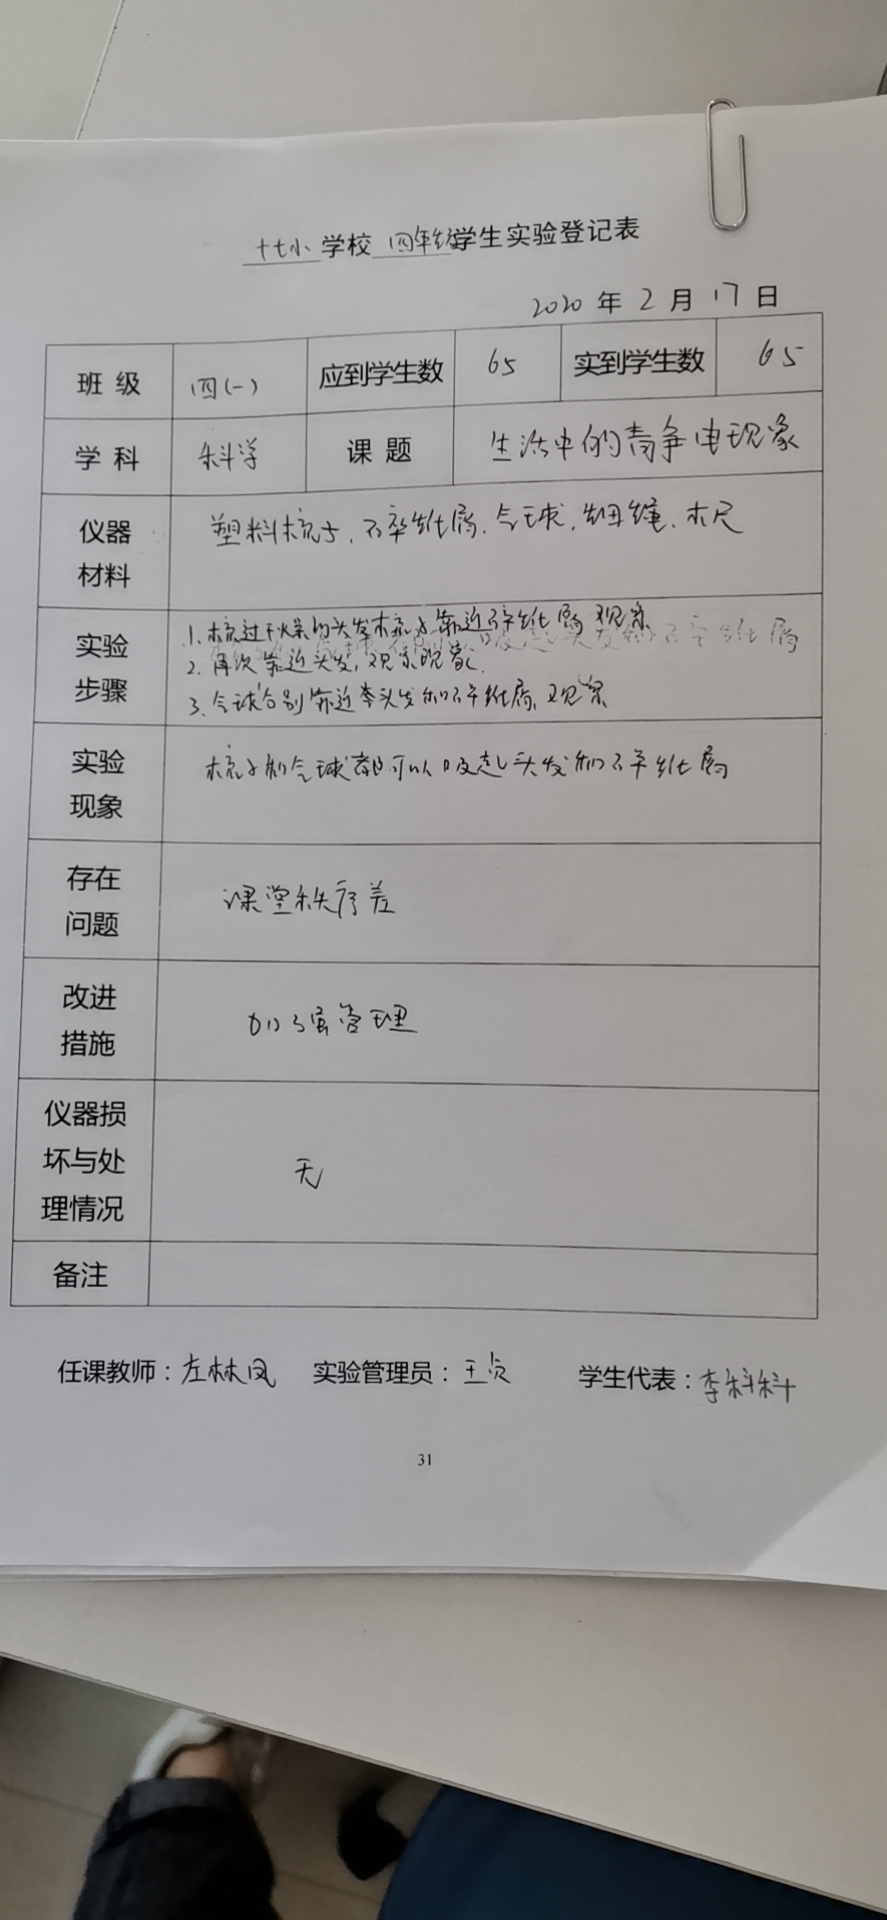 十七小学校四年级学生实验登记表
2020年2月17日
班级 四(一) 应到学生数 65 实到学生数 65
学科 科学 课题 生活中的静电现象
仪器材料 塑料梳子,碎纸屑、气球,细绳、木尺
实验步骤
1.梳过干燥的头发梳子靠近碎纸屑 观察
2.再次靠近头发,观察现象
3.气球分别靠近头发和碎纸屑、观察
实验现象 梳子和气球都可以吸起头发和碎纸屑
存在问题 课堂秩序差
改进措施 加强管理
仪器损坏与处理情况 无
备注
任课教师:左林凤 实验管理员:王 学生代表:李科科
31